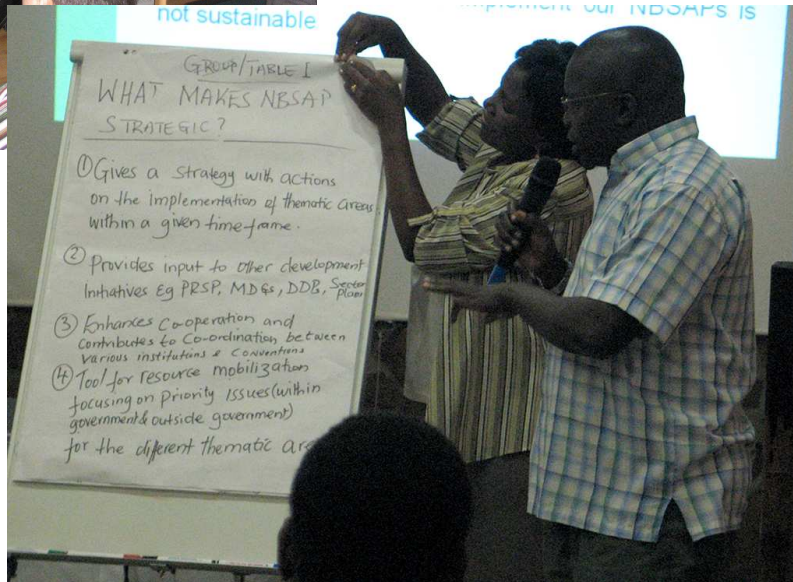 implement our NBSAPs is
not sustainable
GROUP/TABLE 1
WHAT MAKES NBSAP
STRATEGIC?
① Gives a strategy with actions
on the implementation of thematic areas
within a given time-frame.
② Provides input to other development
Initiatives Eg PRSP, MDGs, DDP, Sector
plans
③ Enhances Co-operation and
contributes to Co-ordination between
various institutions & Conventions
④ Tool for resource mobilization
focusing on priority issues (within
government & outside government)
for the different thematic